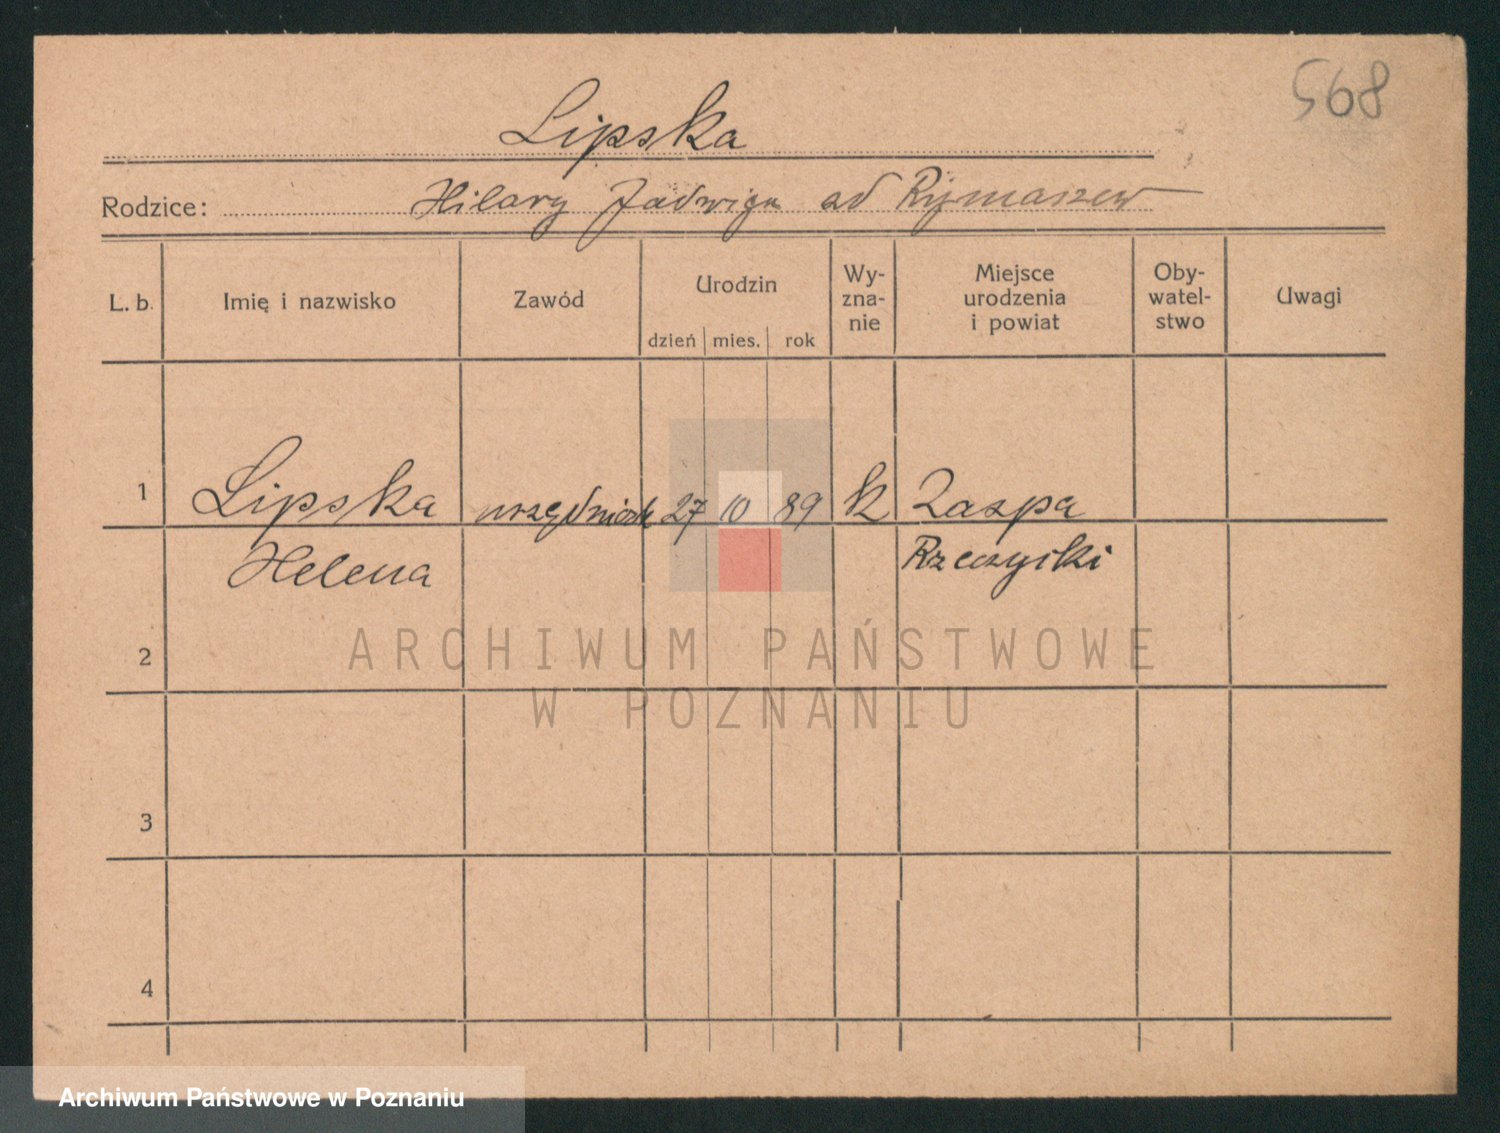 568
Lipska
Rodzice: Hilary Jadwiga od Rymaszew
L. b. Imię i nazwisko Zawód Urodzin dzień mies. rok Wy-zna-nie Miejsce urodzenia i powiat Oby-watel-stwo Uwagi
1 Lipska urzędniczk 27 10 89 k Zaspa
Helena Rzeczycki
2
ARCHIWUM PAŃSTWOWE
W POZNANIU
3
4
Archiwum Państwowe w Poznaniu